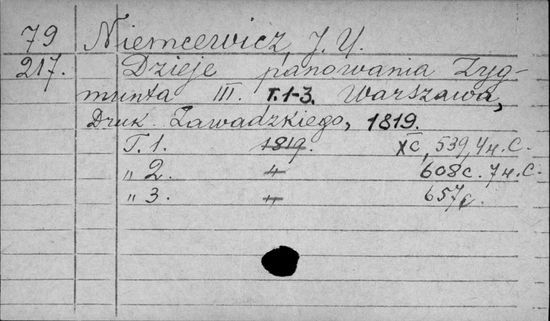 79 Niemcewicz, J. U.
217. Dzieje panowania Zyg-
munta III. T. 1-3. Warszawa,
Druk. Zawadzkiego, 1819.
T. 1. 1819. XC, 539, 4 н. С.
" 2. " 608 с. 7 н. С.
" 3. " 657 с.